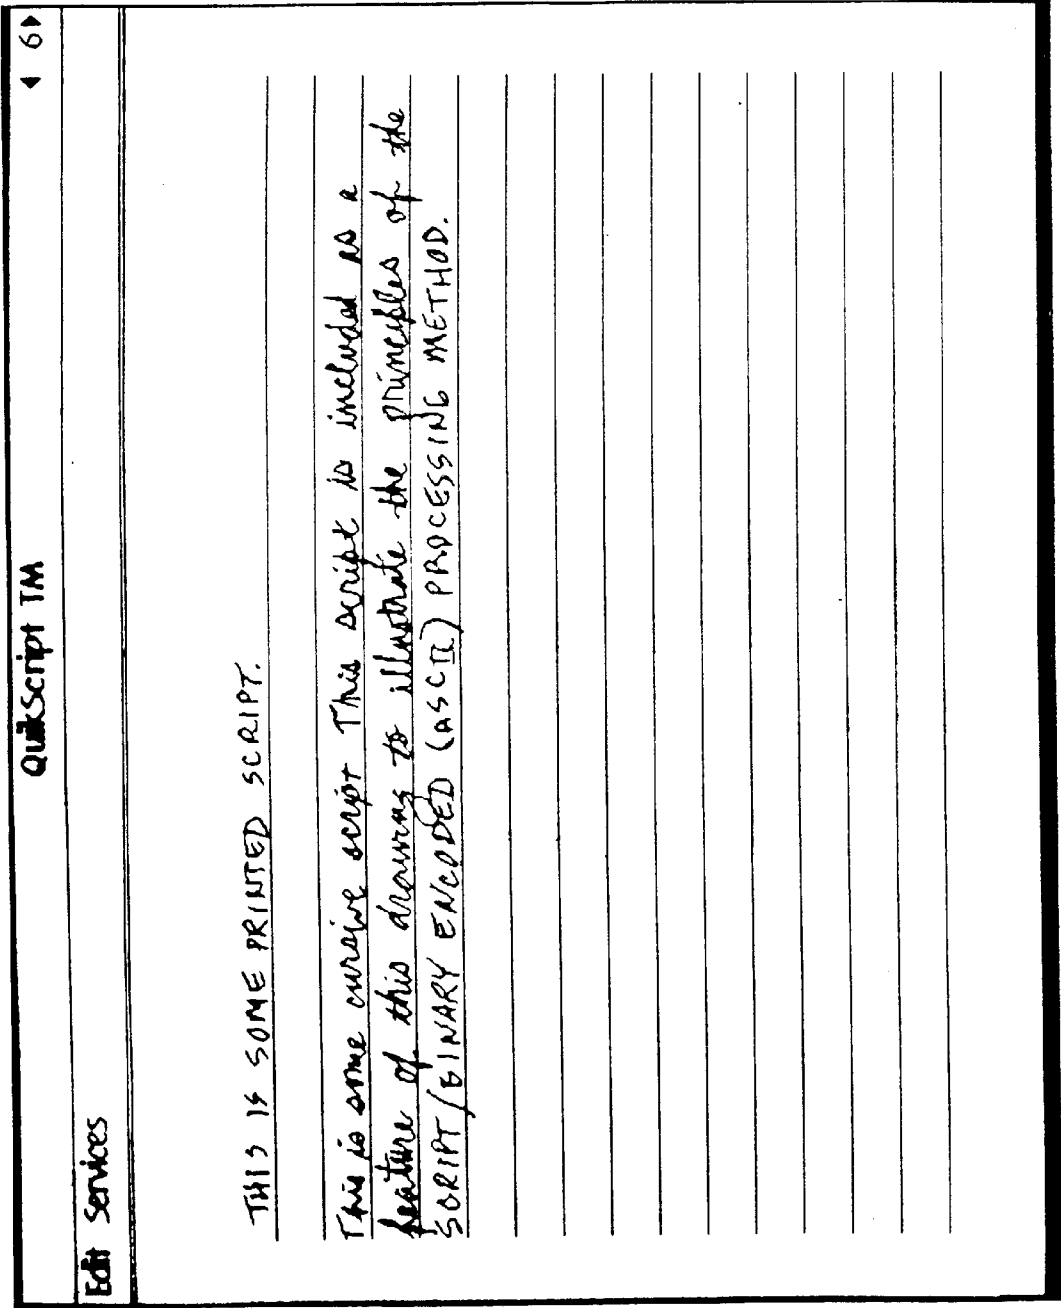 QuikScript TM ◀ 6▶
Edit Services
THIS IS SOME PRINTED SCRIPT.
This is some cursive script This script is included as a
feature of this drawing to illustrate the principles of the
SCRIPT/BINARY ENCODED (ASCII) PROCESSING METHOD.